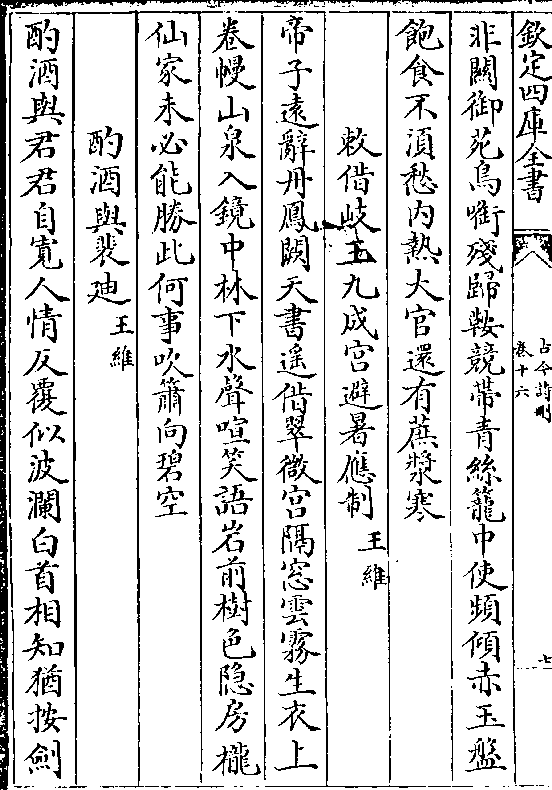 欽定四庫全書
古今詩刪
卷十六
七
非關御苑鳥銜殘歸鞍競帶青絲籠中使頻傾赤玉盤
飽食不須愁内熱大官還有蔗漿寒
敕借岐王九成宮避暑應制 王維
帝子遠辭丹鳳闕天書遥借翠微宮隔窓雲霧生衣上
卷幔山泉入鏡中林下水聲喧笑語岩前樹色隐房櫳
仙家未必能勝此何事吹簫向碧空
酌酒與裴廸 王維
酌酒與君君自寛人情反覆似波瀾白首相知猶按劍